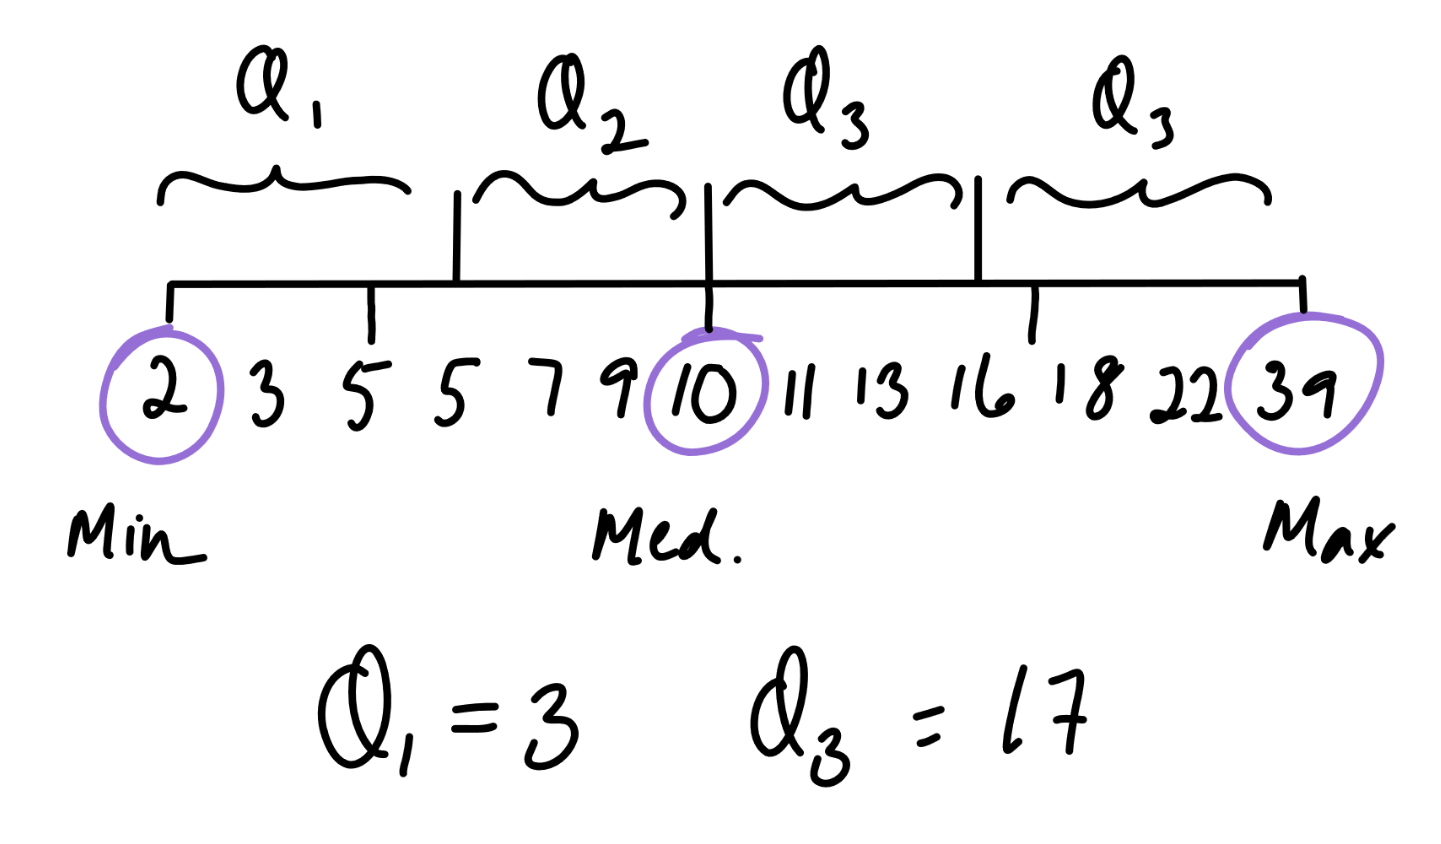 Q₁ Q₂ Q₃ Q₃
2 3 5 5 7 9 10 11 13 16 18 22 39
Min Med. Max
Q₁ = 3 Q₃ = 17